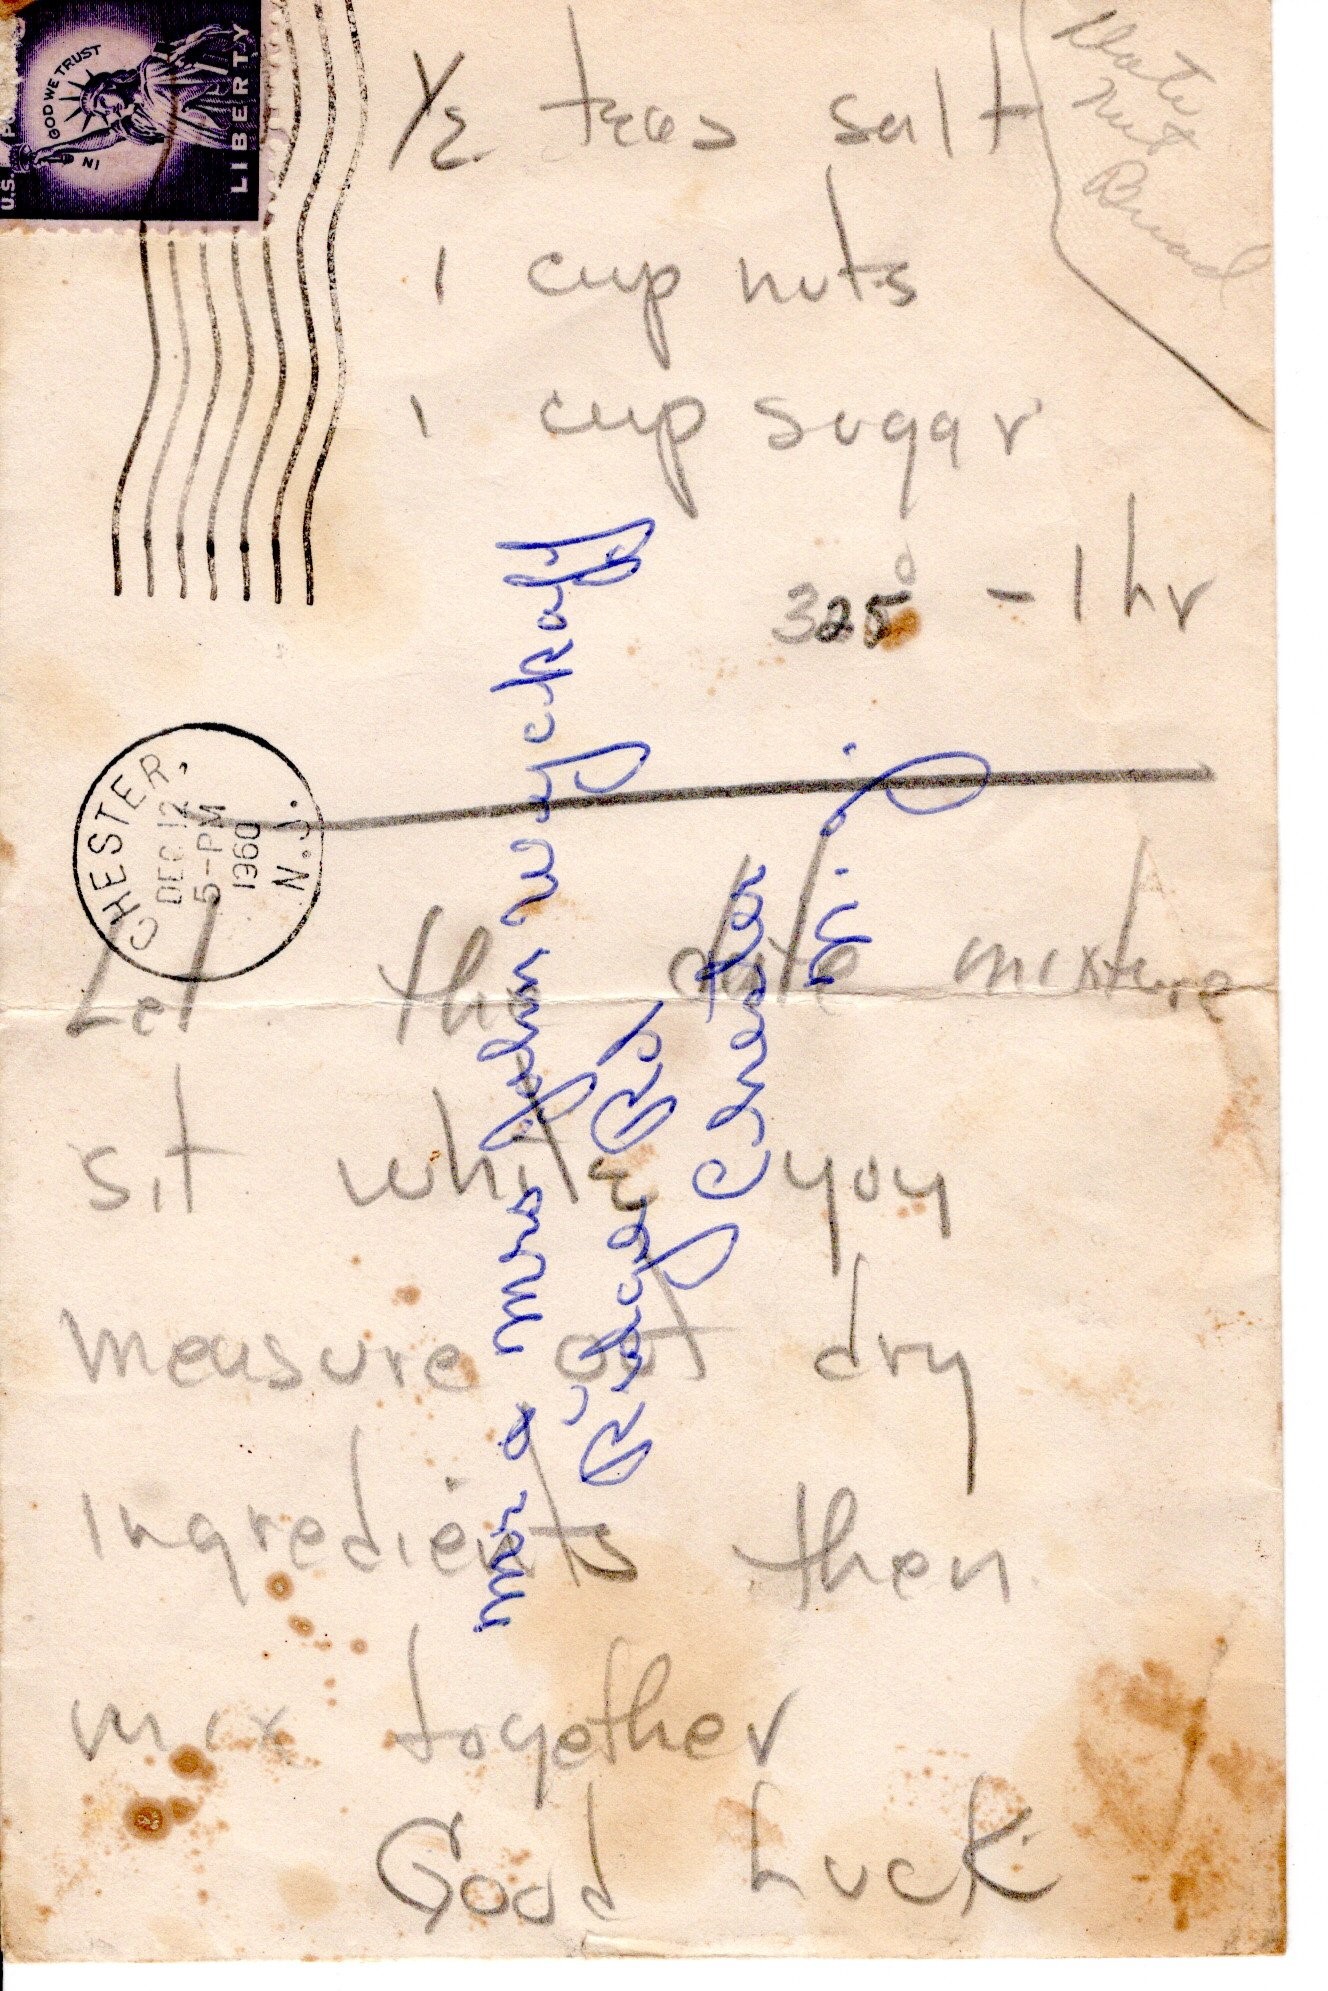 ½ teas salt
1 cup nuts
1 cup sugar
325° - 1 hr
Date
Nut
Bread
Let the date mixture
sit while you
measure out dry
ingredients then
mix together
Good Luck
Mr & Mrs John Wyckoff
Ridge Rd
Chester
N. J.
U.S. PO
IN GOD WE TRUST
LIBERTY
CHESTER,
DEC 12
5-PM
1960
N.J.